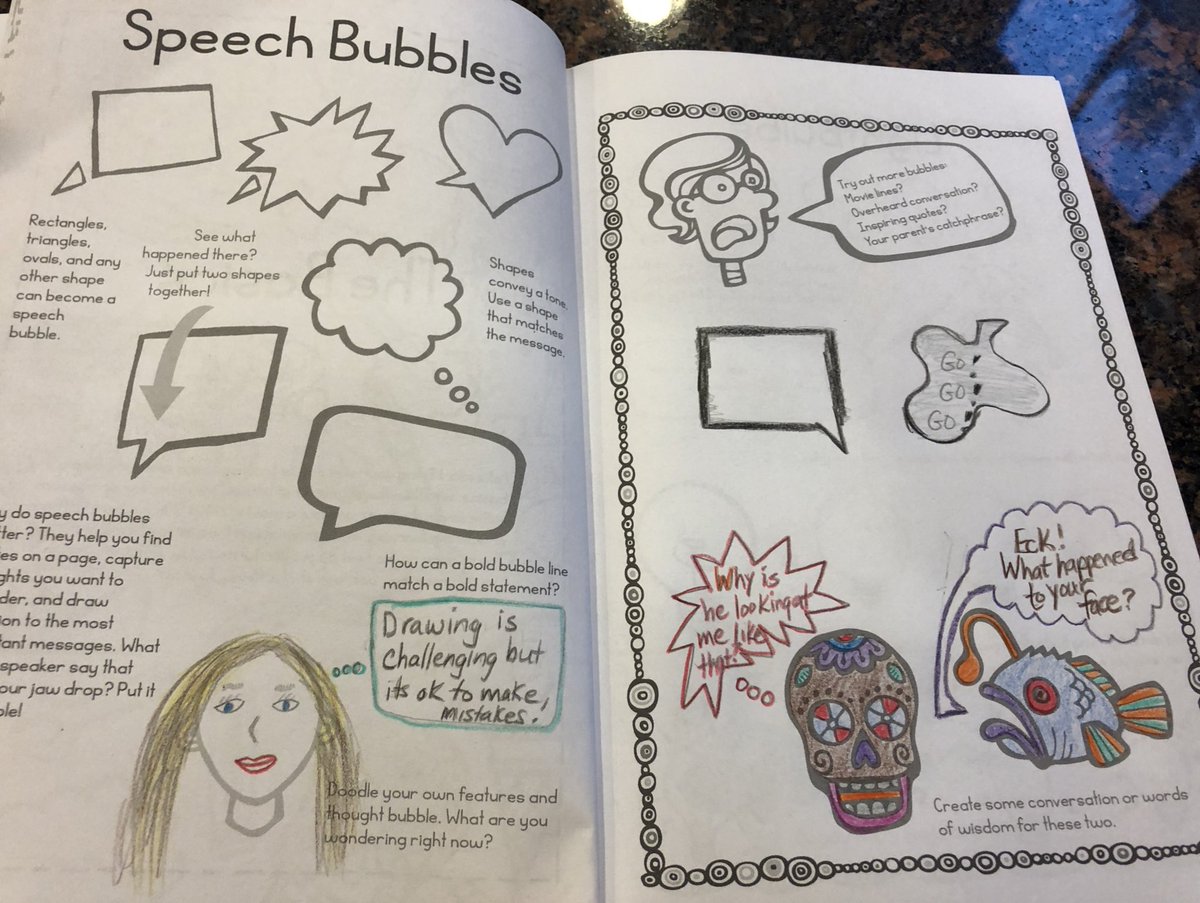 Speech Bubbles
Rectangles,
triangles,
ovals, and any
other shape
can become a
speech
bubble.
See what
happened there?
Just put two shapes
together!
Shapes
convey a tone.
Use a shape
that matches
the message.
do speech bubbles
They help you find
on a page, capture
you want to
and draw
to the most
messages. What
speaker say that
jaw drop? Put it
How can a bold bubble line
match a bold statement?
Drawing is
challenging but
its ok to make,
mistakes.
Doodle your own features and
thought bubble. What are you
wondering right now?
Try out more bubbles:
Movie lines?
Overheard conversation?
Inspiring quotes?
Your parent's catchphrase?
Go!
Go!
Go!
Why is
he looking at
me like
that.
Eck!
What happened
to your
face?
Create some conversation or words
of wisdom for these two.